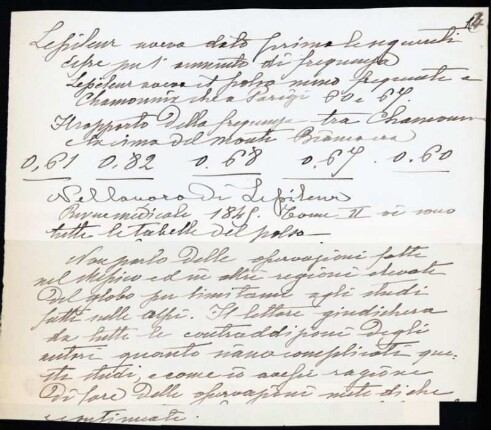 Lepileur aveva dato prima le seguenti
cifre per l'aumento di frequenza
Lepileur aveva il polso meno frequente a
Chamounix che a Parigi 60 e 67.
Il rapporto della frequenza tra Chamounix
e la cima del monte Bianco era
0,61 0.82 0.68 0.67 0.60
Nel lavoro di Lepileur
Revue médicale 1845. Tome II vi sono
tutte le tabelle del polso
Non parlo delle osservazioni fatte
nel Messico ed in altre regioni elevate
del globo per limitarmi agli studi
fatti sulle alpi. Il lettore giudicherà
da tutte le contraddizioni degli
autori quanto siano complicati que-
sti studi, e come io avessi ragione
di fare delle osservazioni metodiche
e continuate.